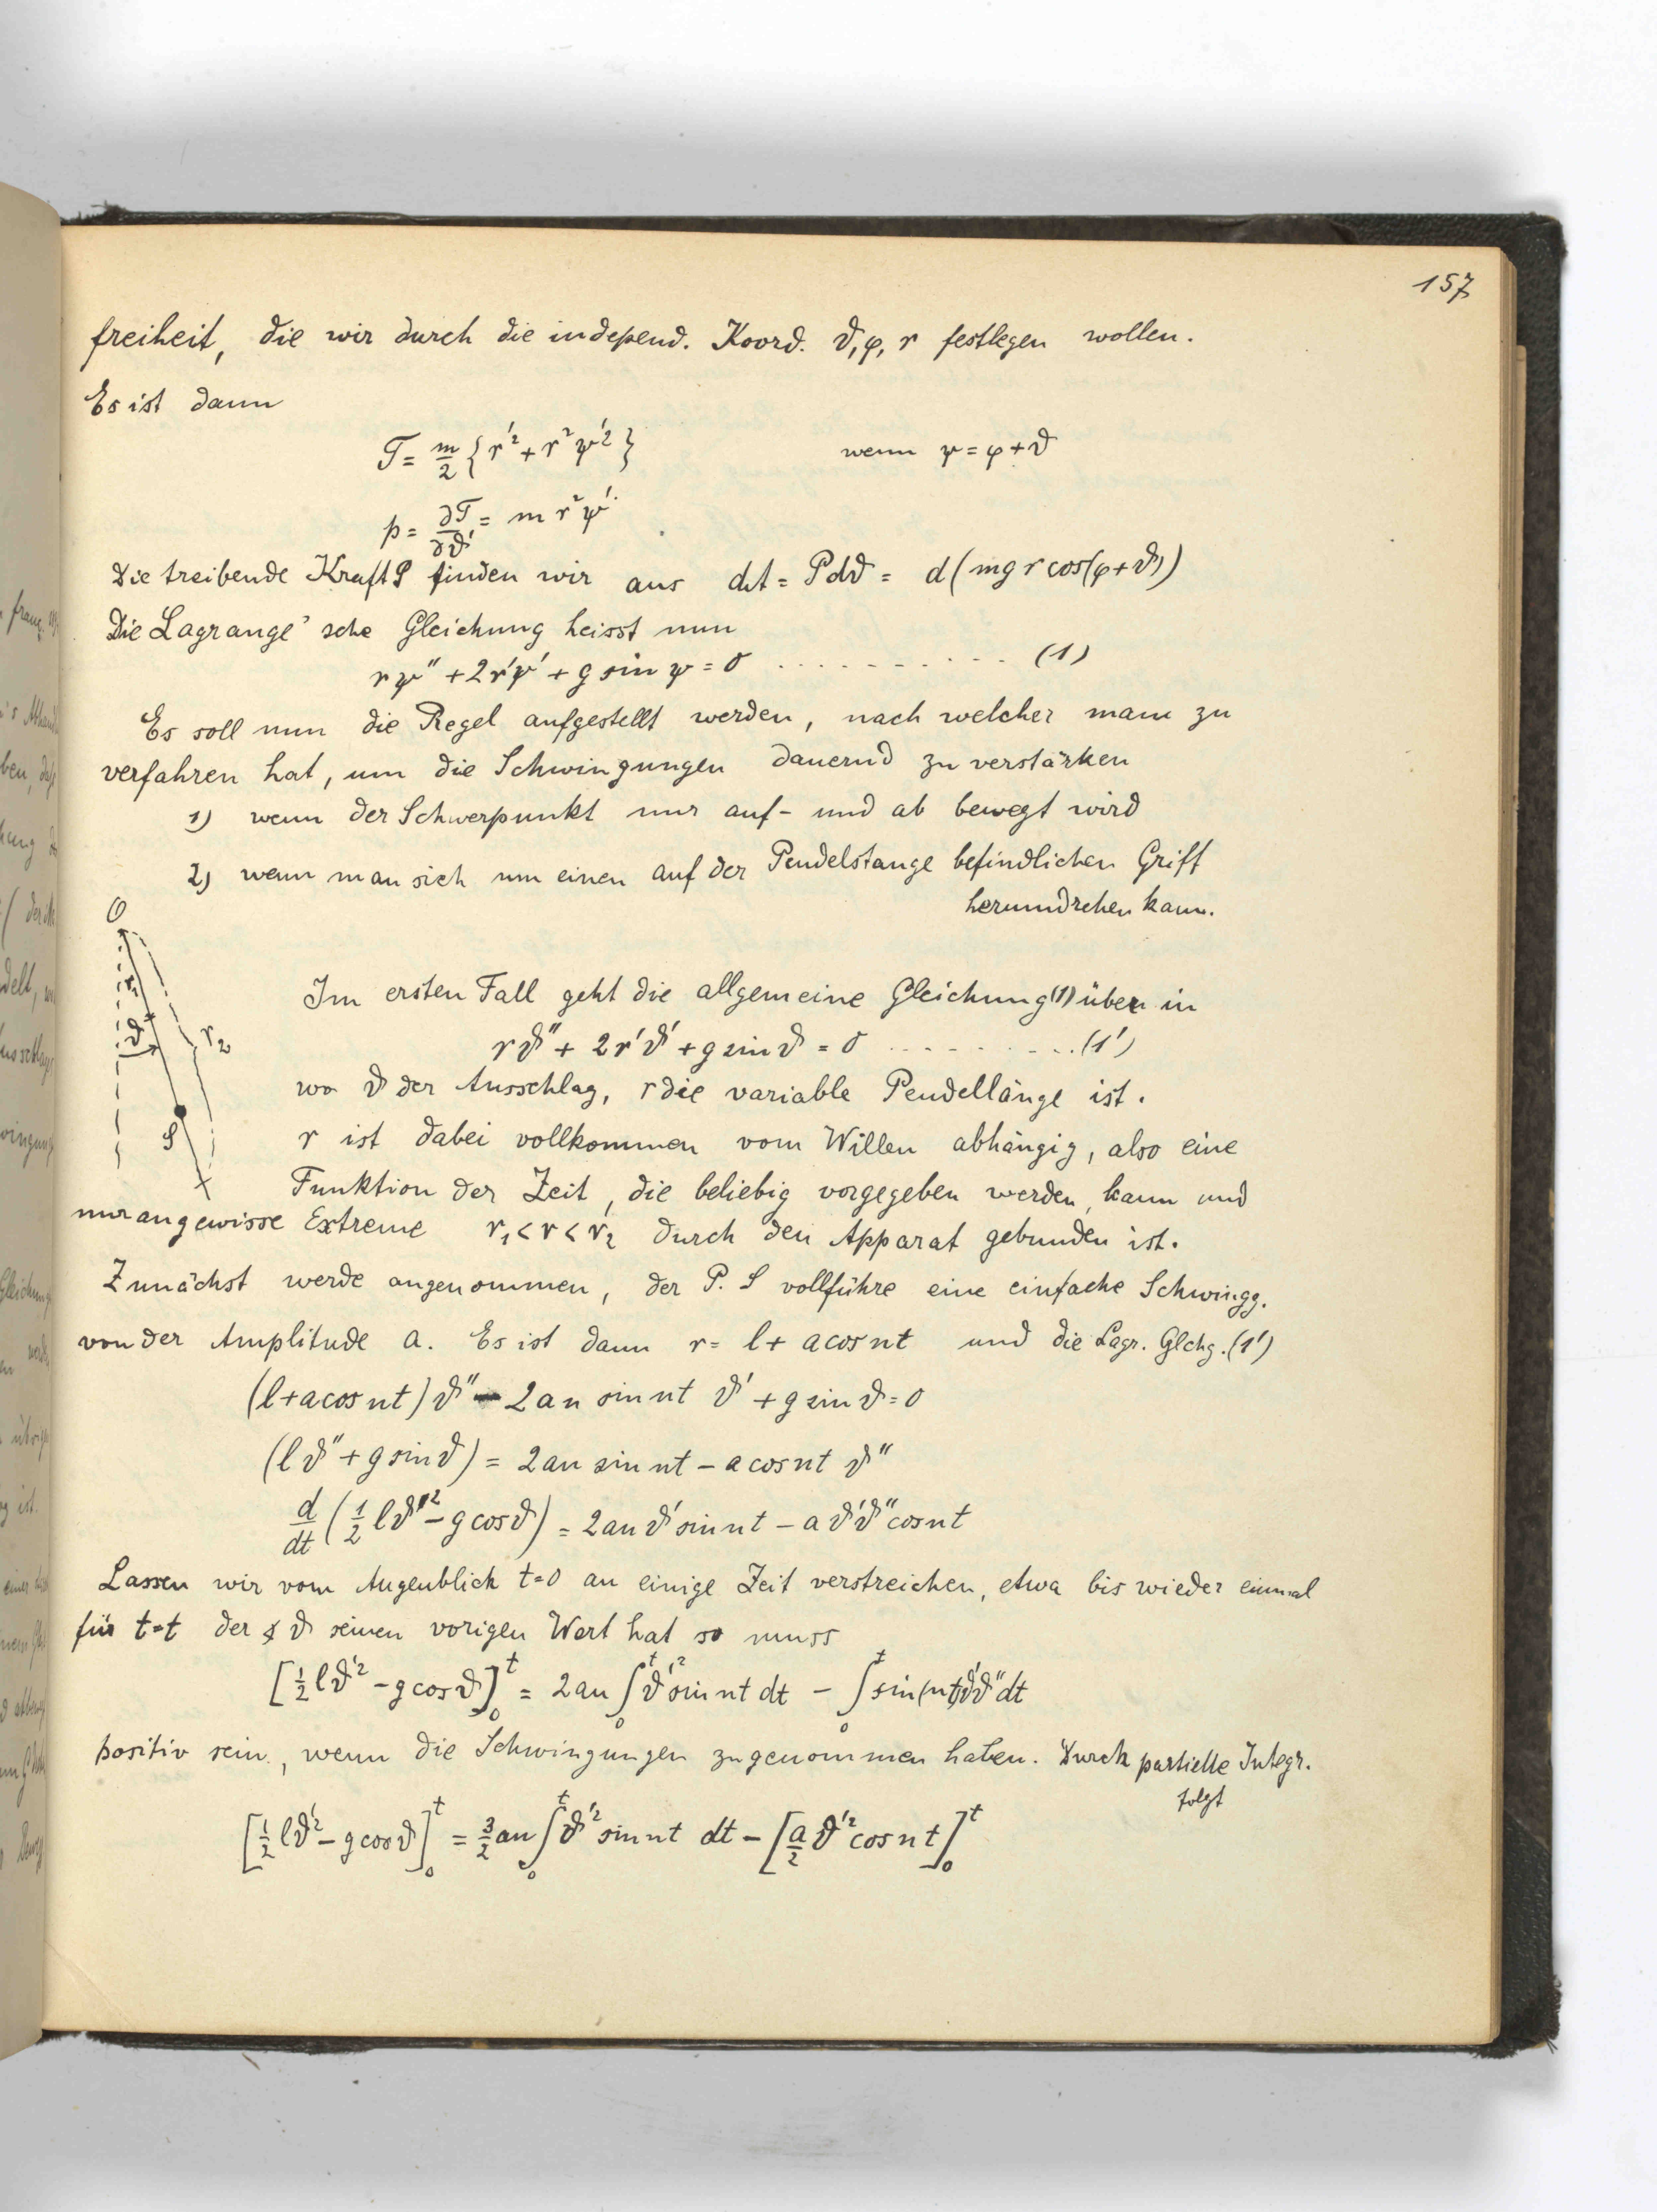 157
freiheit, die wir durch die independ. Koord. ϑ, φ, r festlegen wollen.
Es ist dann
T = m/2 {r'² + r²ψ'²} wenn ψ = φ + ϑ
p = ∂T/∂ϑ' = m r²ψ'
Die treibende Kraft P finden wir aus dA = Pdϑ = d(mg r cos(φ+ϑ))
Die Lagrange'sche Gleichung heisst nun
rψ'' + 2r'ψ' + g sin ψ = 0 ........... (1)
Es soll nun die Regel aufgestellt werden, nach welcher man zu
verfahren hat, um die Schwingungen dauernd zu verstärken
1) wenn der Schwerpunkt nur auf- und ab bewegt wird
2) wenn man sich um einen auf der Pendelstange befindlichen Griff
herumdrehen kann.
O
r₁
ϑ
r₂
S
Im ersten Fall geht die allgemeine Gleichung (1) über in
rϑ'' + 2r'ϑ' + g sin ϑ = 0 .......... (1')
wo ϑ der Ausschlag, r die variable Pendellänge ist.
r ist dabei vollkommen vom Willen abhängig, also eine
Funktion der Zeit, die beliebig vorgegeben werden kann und
nur an gewisse Extreme r₁ < r < r₂ durch den Apparat gebunden ist.
Zunächst werde angenommen, der P. S vollführe eine einfache Schwingg.
von der Amplitude a. Es ist dann r = l + a cos nt und die Lagr. Glchg. (1')
(l + a cos nt) ϑ'' - 2an sin nt ϑ' + g sin ϑ = 0
(lϑ'' + g sin ϑ) = 2an sin nt - a cos nt ϑ''
d/dt (1/2 lϑ'² - g cos ϑ) = 2an ϑ' sin nt - a ϑ'ϑ'' cos nt
Lassen wir vom Augenblick t=0 an einige Zeit verstreichen, etwa bis wieder einmal
für t=t der ∢ ϑ seinen vorigen Wert hat so muss
[1/2 lϑ'² - g cos ϑ]₀ᵗ = 2an ∫₀ᵗ ϑ'² sin nt dt - ∫₀ᵗ sin(nt)ϑ'ϑ'' dt
positiv sein, wenn die Schwingungen zugenommen haben. Durch partielle Integr.
folgt
[1/2 lϑ'² - g cos ϑ]₀ᵗ = 3/2 an ∫₀ᵗ ϑ'² sin nt dt - [a/2 ϑ'² cos nt]₀ᵗ